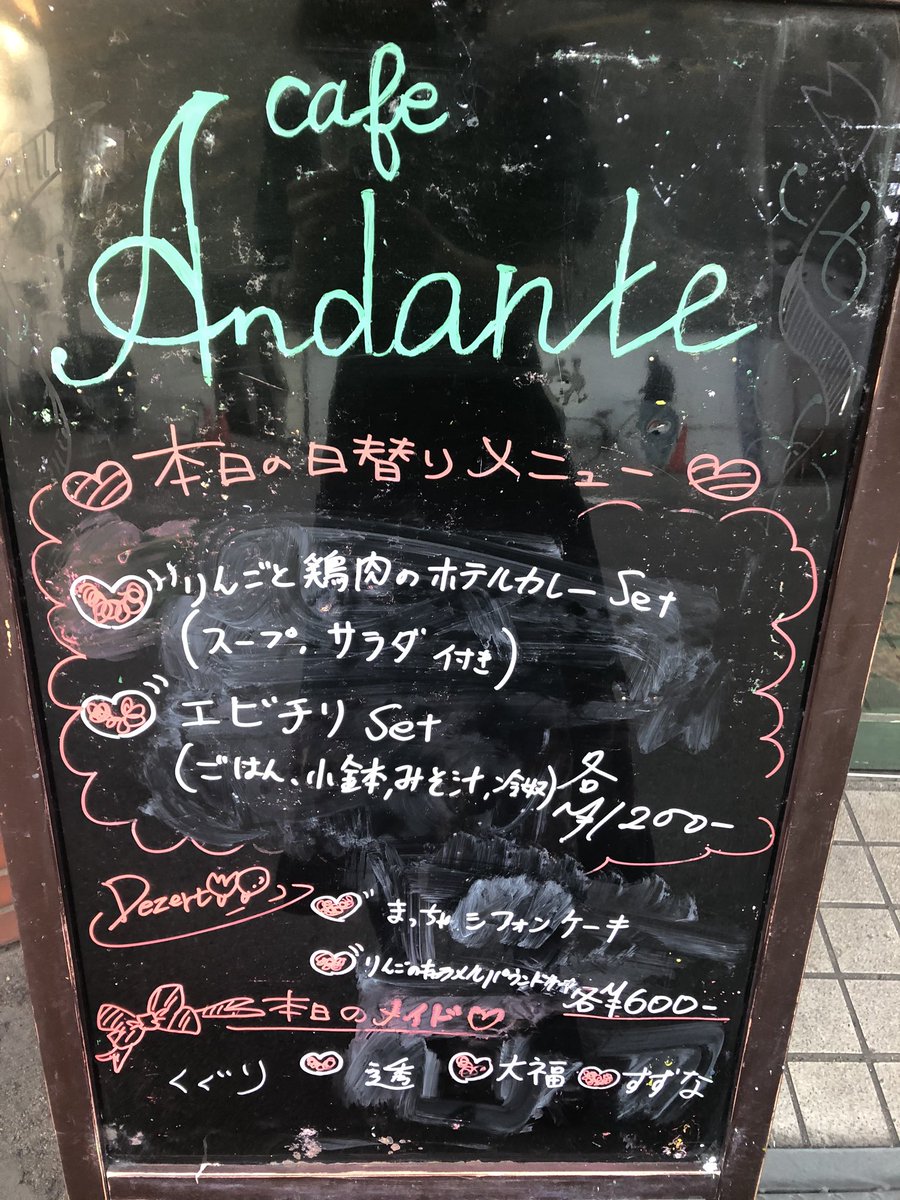 cafe
Andante
本日の日替りメニュー
りんごと鶏肉のホテルカレー Set
(スープ, サラダ 付き)
エビチリ Set
(ごはん、小鉢,みそ汁,冷奴)
各
¥1200-
Dezert
まっちゃシフォンケーキ
りんごのキャラメルパウンドケーキ
各¥600-
本日のメイド
くぐり 透 大福 すずな